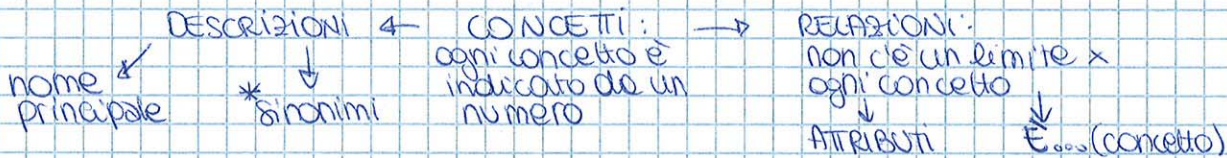 DESCRIZIONI ← CONCETTI: → RELAZIONI:
ogni concetto è
indicato da un
numero
non c'è un limite x
ogni concetto
nome
principale
*sinonimi
ATTRIBUTI
È...(concetto)